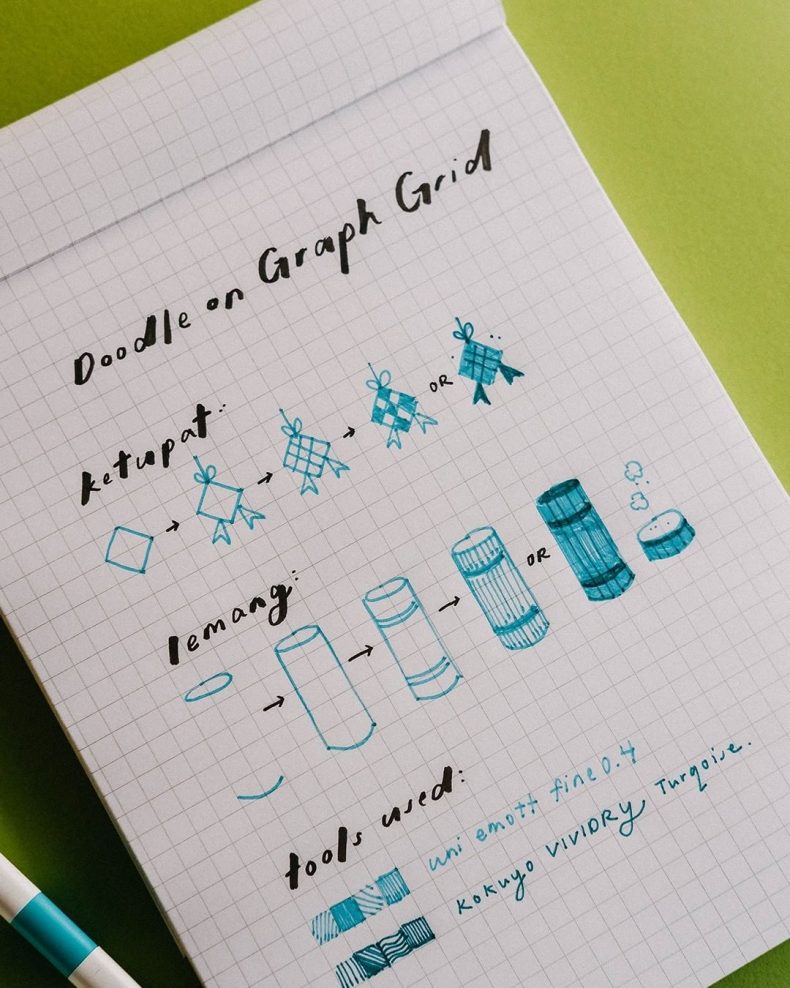 Doodle on Graph Grid
ketupat:
OR
lemang:
OR
tools used:
uni emott fine 0.4
KOKUYO VIVIDRY Turqoise.